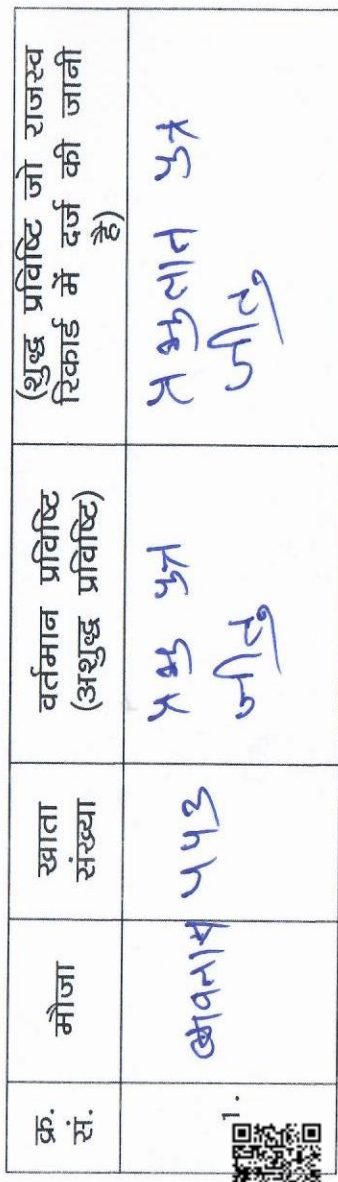 क्र. सं.
मौजा
खाता संख्या
वर्तमान प्रविष्टि
(अशुद्ध प्रविष्टि)
(शुद्ध प्रविष्टि जो राजस्व
रिकार्ड में दर्ज की जानी
है)
1.
प्रभु पुत्र
जीतु
प्रभुलाल पुत्र
जीतु